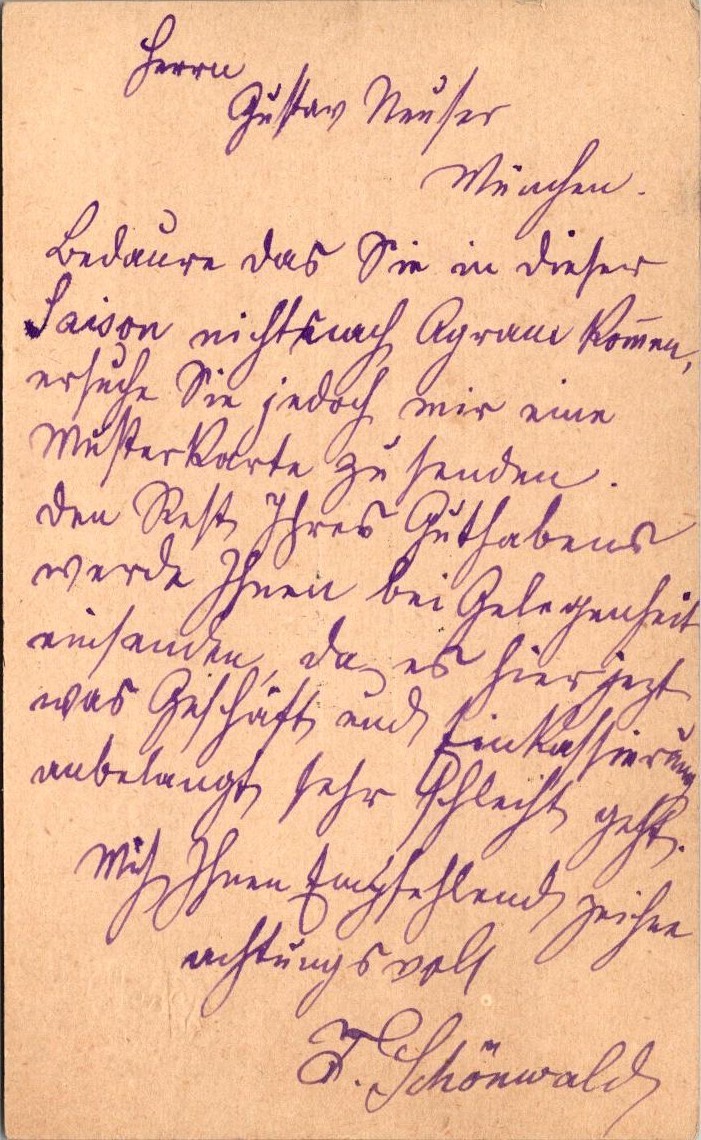 Herrn
Gustav Neuser
München.
Bedaure das Sie in dieser
Saison nicht nach Agram kom̅en,
ersuche Sie jedoch mir eine
Musterkarte zu senden.
den Rest Ihres Guthabens
werde Ihnen bei Gelegenheit
einsenden, da es hier jezt
was Geschäft und Einkassierung
anbelangt sehr schlecht geht.
Mich Ihnen Empfehlend zeichne
achtungsvoll
Schönwald